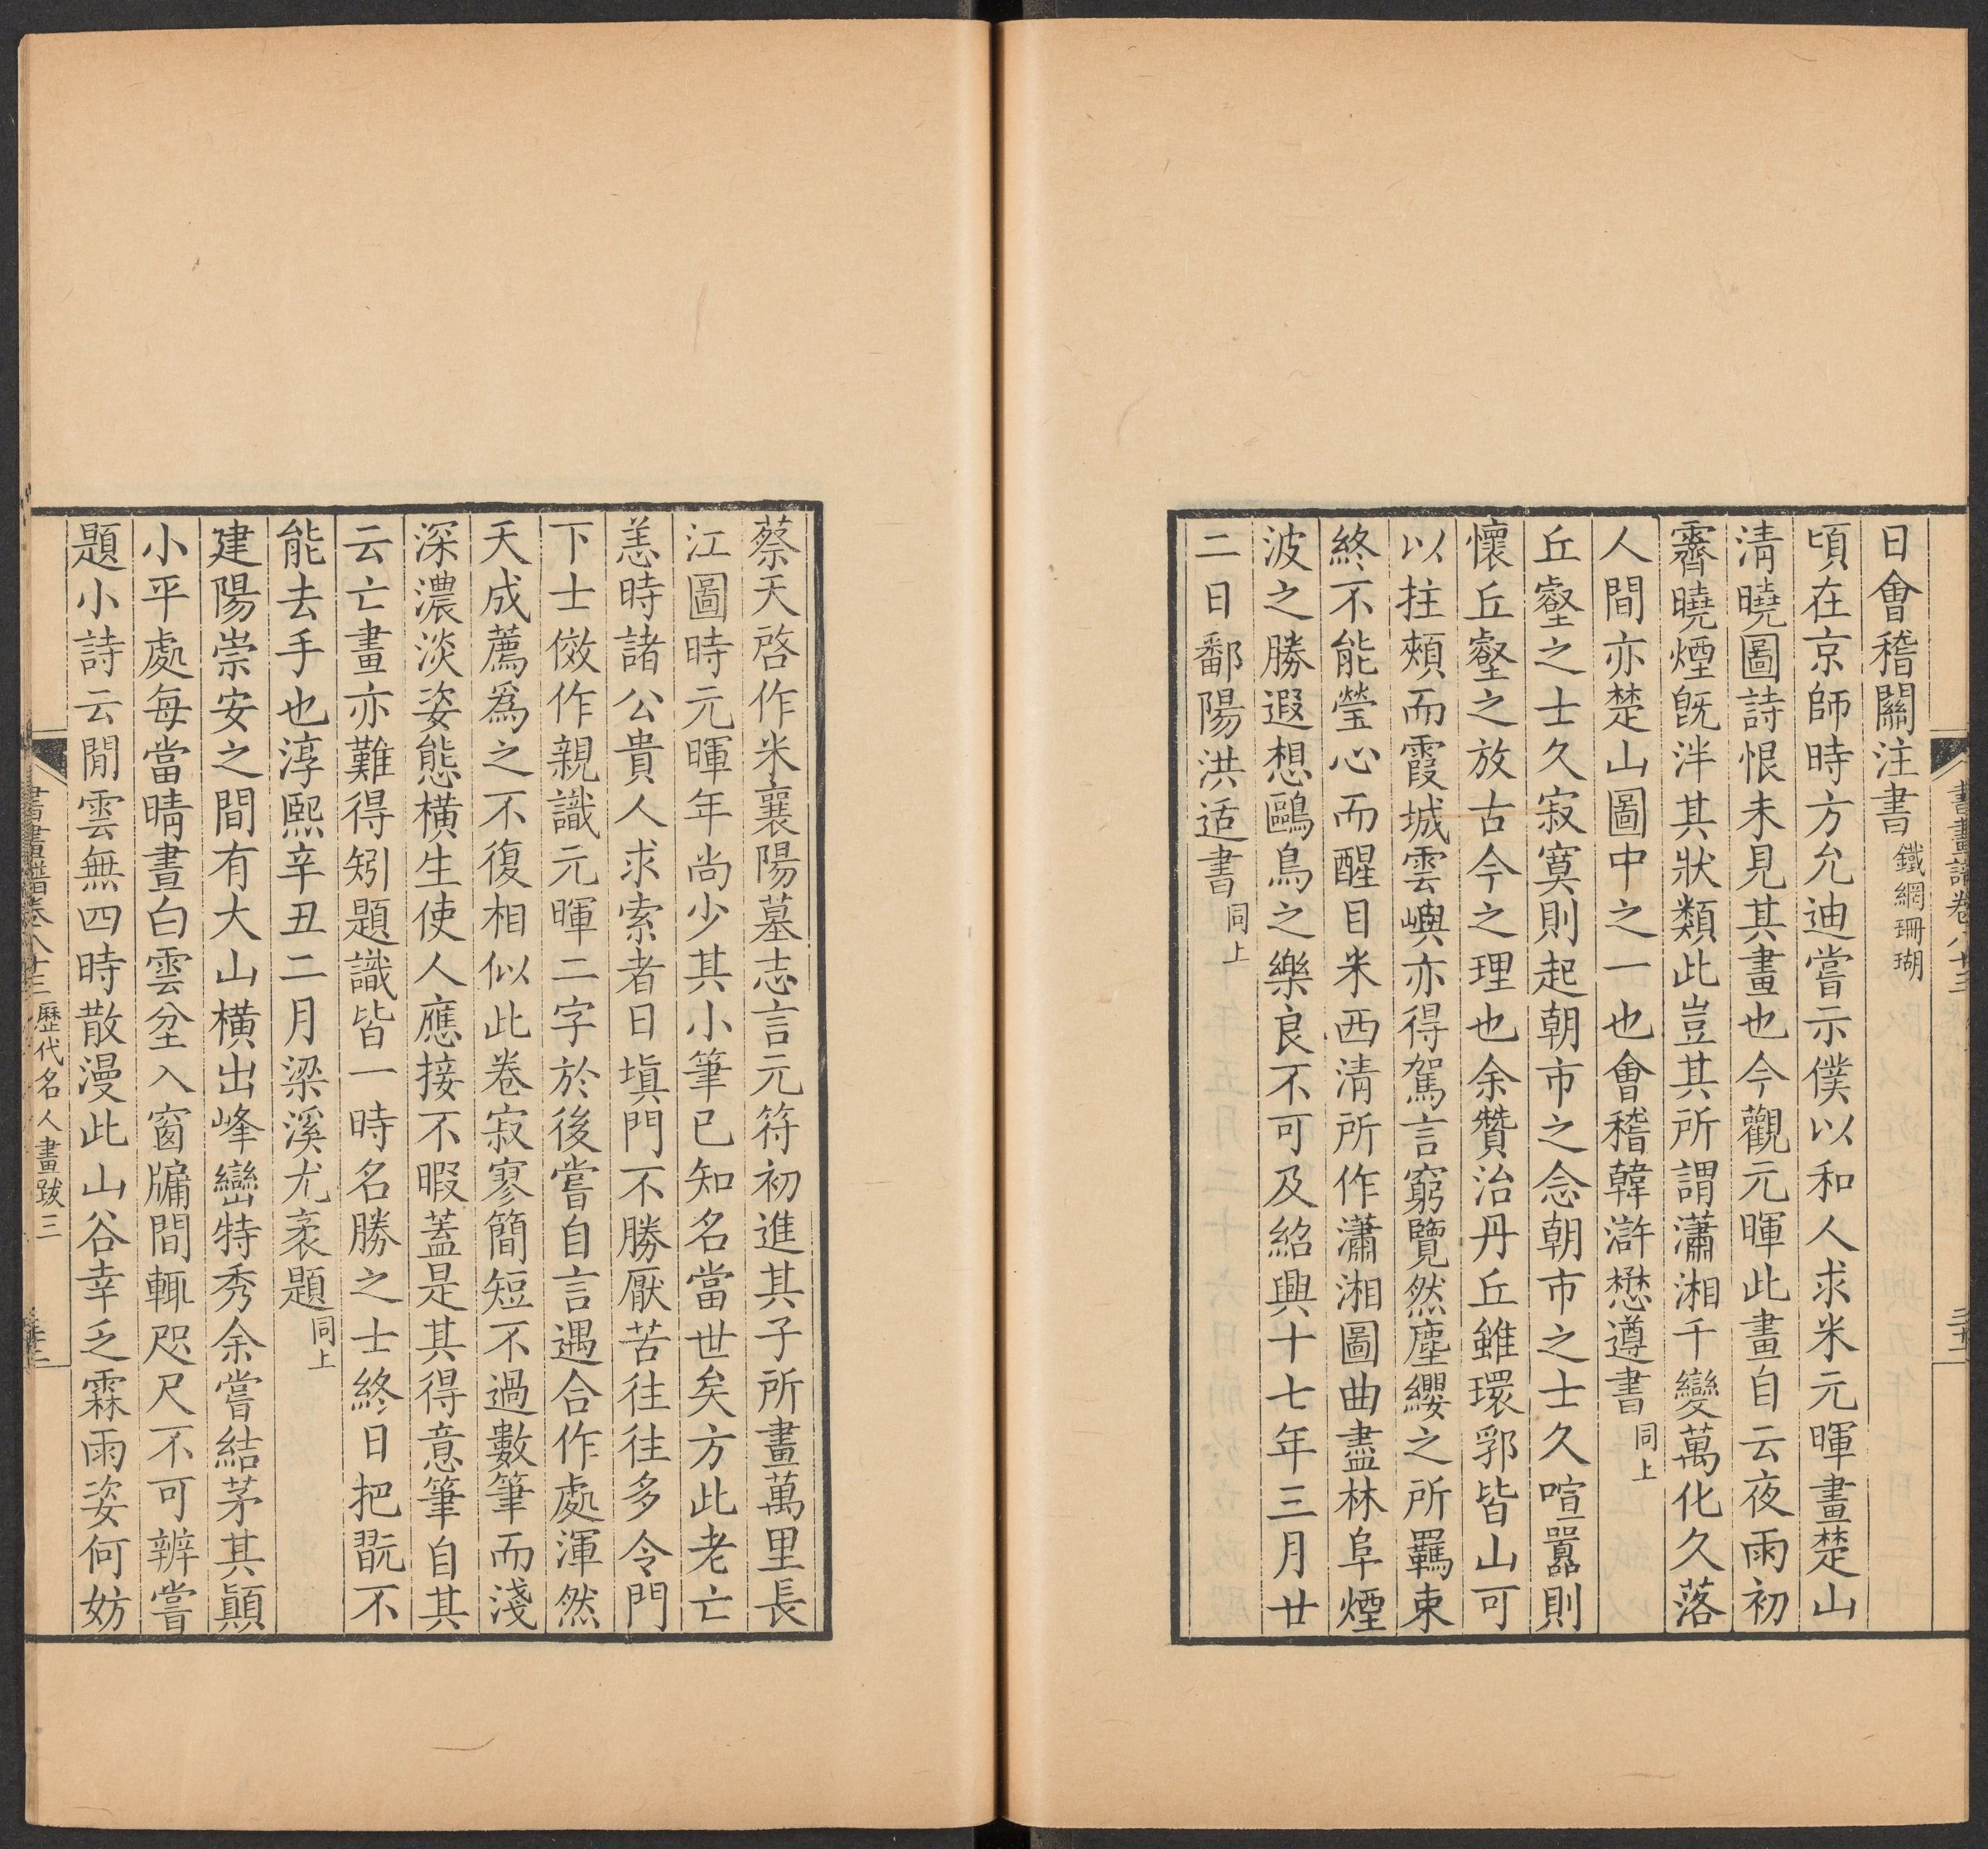 日會稽關注書鐵網珊瑚
頃在京師時方允迪嘗示僕以和人求米元暉畫楚山
清曉圖詩恨未見其畫也今觀元暉此畫自云夜雨初
霽曉煙旣泮其狀類此豈其所謂瀟湘千變萬化久落
人間亦楚山圖中之一也會稽韓滸懋遵書同上
丘壑之士久寂寞則起朝市之念朝市之士久喧囂則
懷丘壑之放古今之理也余贊治丹丘雖環郛皆山可
以拄頰而霞城雲嶼亦得駕言窮覽然塵纓之所羈束
終不能瑩心而醒目米西清所作瀟湘圖曲盡林阜煙
波之勝遐想鷗鳥之樂良不可及紹興十七年三月廿
二日鄱陽洪适書同上
蔡天啓作米襄陽墓志言元符初進其子所畫萬里長
江圖時元暉年尚少其小筆已知名當世矣方此老亡
恙時諸公貴人求索者日塡門不勝厭苦往往多令門
下士倣作親識元暉二字於後嘗自言遇合作處渾然
天成薦爲之不復相似此卷寂寥簡短不過數筆而淺
深濃淡姿態橫生使人應接不暇蓋是其得意筆自其
云亡畫亦難得矧題識皆一時名勝之士終日把翫不
能去手也淳熙辛丑二月梁溪尤袤題同上
建陽崇安之間有大山橫出峰巒特秀余嘗結茅其顚
小平處每當晴晝白雲坌入窗牖間輒咫尺不可辨嘗
題小詩云閒雲無四時散漫此山谷幸乏霖雨姿何妨
書畫譜卷八十三 歷代名人畫跋三